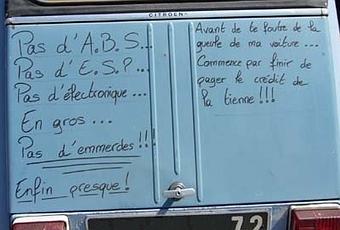 CITROËN
Pas d'A.B.S...
Pas d'E.S.P...
Pas d'électronique...
En gros...
Pas d'emmerdes !!
Enfin presque !
Avant de te foutre de la
gueule de ma voiture...
Commence par finir de
payer le crédit de
la tienne !!!
72